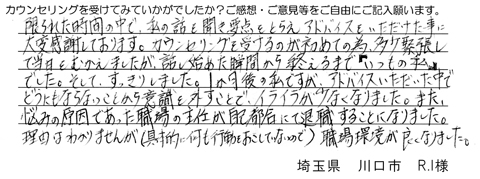 カウンセリングを受けてみていかがでしたか？ご感想・ご意見等をご自由にご記入願います。
限られた時間の中で、私の話を聞き要点をとらえ、アドバイスをいただけた事に
大変感謝しております。カウンセリングを受けるのが初めての為、多少緊張し
て当日をむかえましたが、話し始めた瞬間から終えるまで"いつもの私"
でした。そして、すっきりしました。1か月後の私ですが、アドバイスいただいた中で
どうにもならないことから意識を外すことで、イライラが少なくなりました。また、
悩みの原因であった職場の主任が自己都合にて退職することになりました。
理由はわかりませんが(具体的に何も行動をおこしていないので)職場環境が良くなりました。
埼玉県 川口市 R.I様